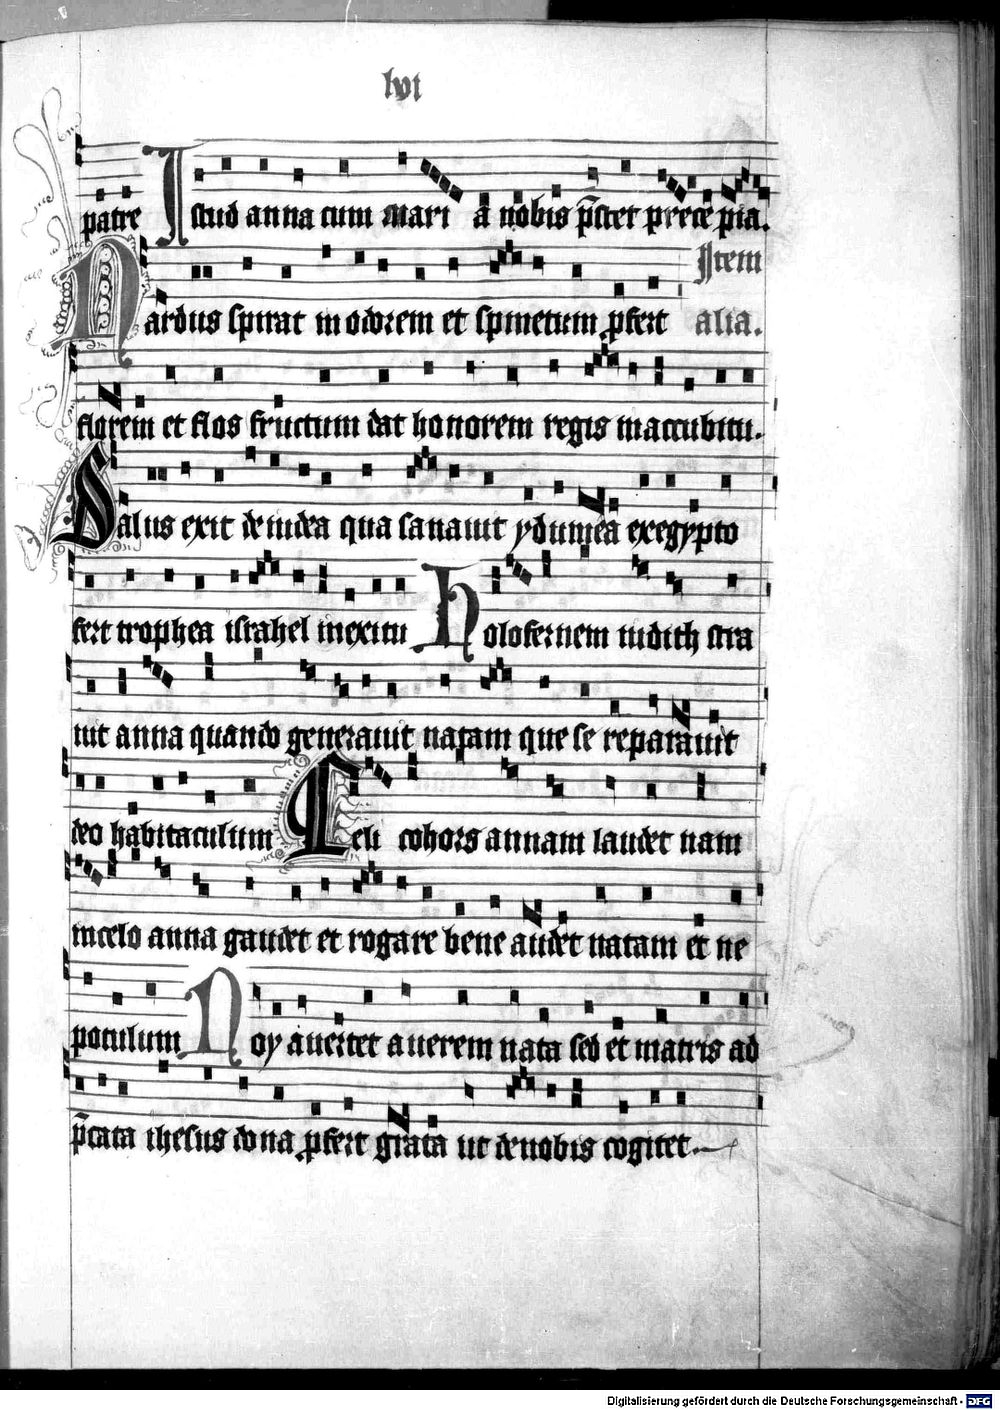 lvi
patre Istud anna cum mari a nobis p̄stet prece pia.
Item
Nardus spirat in odorem et spinetum ꝓfert alia.
florem et flos fructum dat honorem regis in accubitu.
Salus exit de iudea qua sanauit ydumea ex egypto
fert trophea israhel in exitu Holofernem iudith stra
uit anna quando generauit natam que se reparauit
deo habitaculum Celi cohors annam laudet nam
in celo anna gaudet et rogare bene audet natam et ne
potulum Noy auertet a uerem nata sed et matris ad
p̄cata ihesus dona ꝓfert grata ut de nobis cogitet.
Digitalisierung gefördert durch die Deutsche Forschungsgemeinschaft - DFG